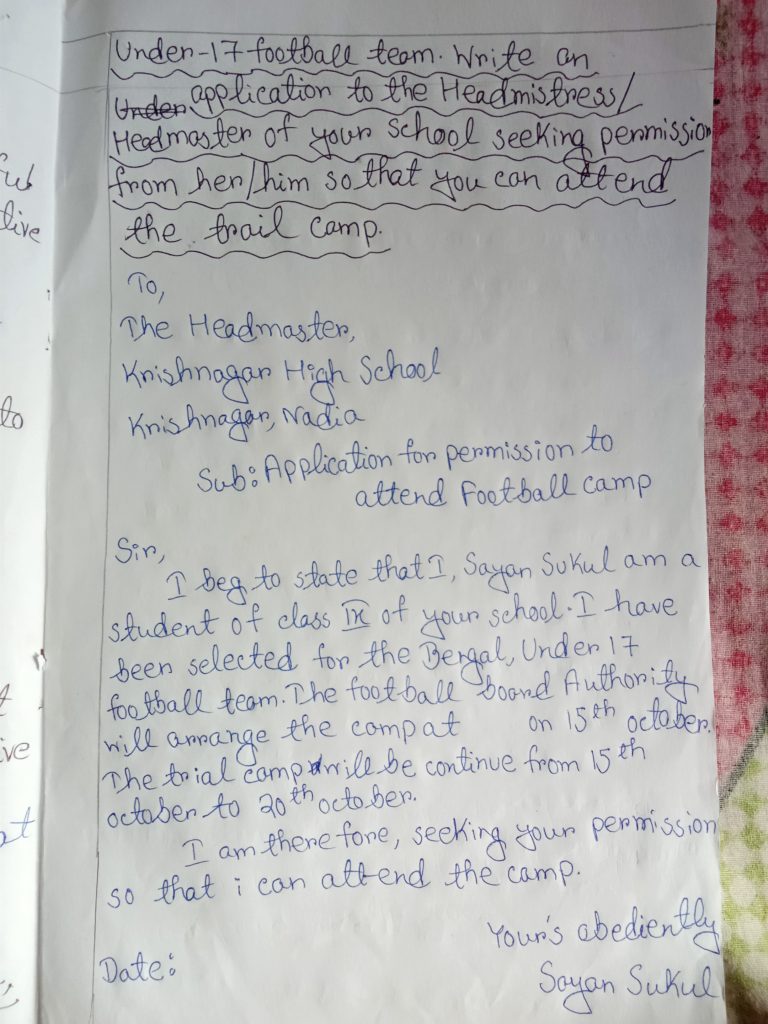 Under-17 football team. Write an
Under application to the Headmistress/
Headmaster of your school seeking permission
from her/him so that you can attend
the trail camp.
To,
The Headmaster,
Krishnagar High School
Krishnagar, Nadia
Sub: Application for permission to
attend Football camp
Sir,
I beg to state that I, Sayan Sukul am a
student of class IX of your school. I have
been selected for the Bengal, Under 17
football team. The football board Authority
will arrange the camp at on 15th october.
The trial camp will be continue from 15th
october to 20th october.
I am therefore, seeking your permission
so that i can attend the camp.
Your's abediently
Sayan Sukul
Date: